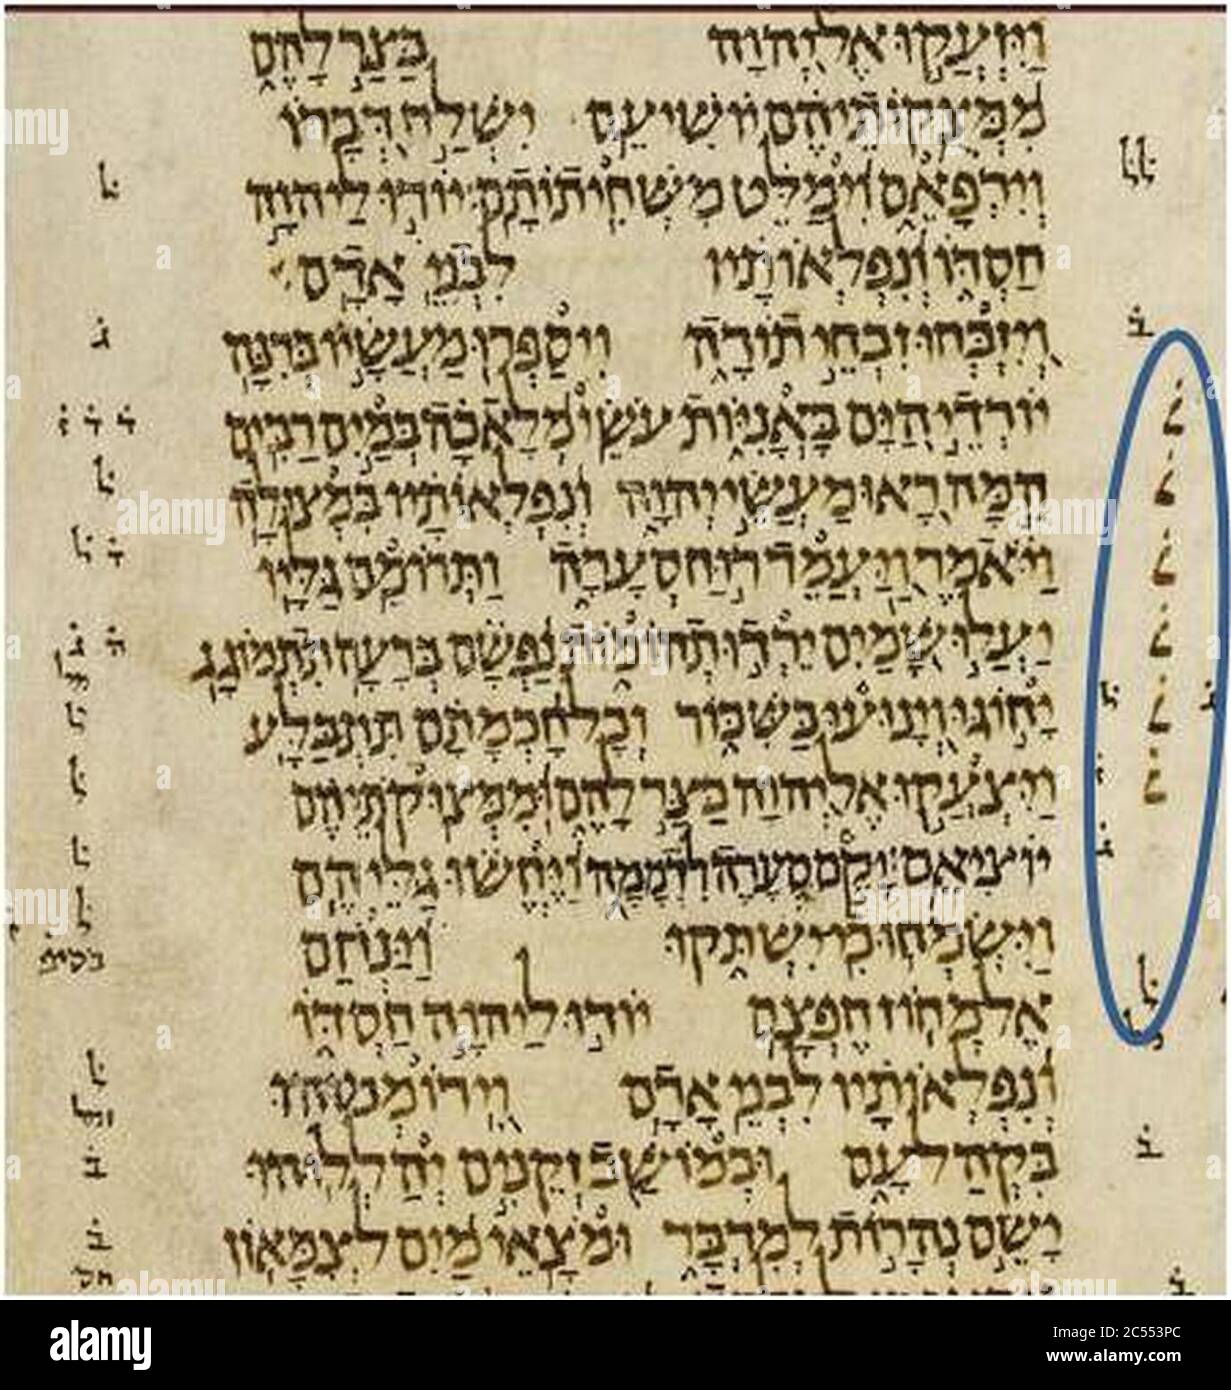 וַיִּזְעֲקוּ אֶל־יְהוָה בַּצַּר לָהֶם
מִמְּצֻקוֹתֵיהֶם יוֹשִׁיעֵם יִשְׁלַח דְּבָרוֹ
וְיִרְפָּאֵם וִימַלֵּט מִשְּׁחִיתוֹתָם יוֹדוּ לַיהוָה
חַסְדּוֹ וְנִפְלְאוֹתָיו לִבְנֵי אָדָם
וְיִזְבְּחוּ זִבְחֵי תוֹדָה וִיסַפְּרוּ מַעֲשָׂיו בְּרִנָּה
יוֹרְדֵי הַיָּם בָּאֳנִיּוֹת עֹשֵׂי מְלָאכָה בְּמַיִם רַבִּים
הֵמָּה רָאוּ מַעֲשֵׂי יְהוָה וְנִפְלְאוֹתָיו בִּמְצוּלָה
וַיֹּאמֶר וַיַּעֲמֵד רוּחַ סְעָרָה וַתְּרוֹמֵם גַּלָּיו
יַעֲלוּ שָׁמַיִם יֵרְדוּ תְהוֹמוֹת נַפְשָׁם בְּרָעָה תִתְמוֹגָג
יָחוֹגּוּ וְיָנוּעוּ כַּשִּׁכּוֹר וְכָל־חָכְמָתָם תִּתְבַּלָּע
וַיִּצְעֲקוּ אֶל־יְהוָה בַּצַּר לָהֶם וּמִמְּצוּקֹתֵיהֶם
יוֹצִיאֵם יָקֵם סְעָרָה לִדְמָמָה וַיֶּחֱשׁוּ גַּלֵּיהֶם
וַיִּשְׂמְחוּ כִי־יִשְׁתֹּקוּ וַיַּנְחֵם
אֶל־מְחוֹז חֶפְצָם יוֹדוּ לַיהוָה חַסְדּוֹ
וְנִפְלְאוֹתָיו לִבְנֵי אָדָם וִירוֹמְמוּהוּ
בִּקְהַל־עָם וּבְמוֹשַׁב זְקֵנִים יְהַלְלוּהוּ
יָשֵׂם נְהָרוֹת לְמִדְבָּר וּמֹצָאֵי מַיִם לְצִמָּאוֹן
alamy
Image ID: 2C553PC
www.alamy.com